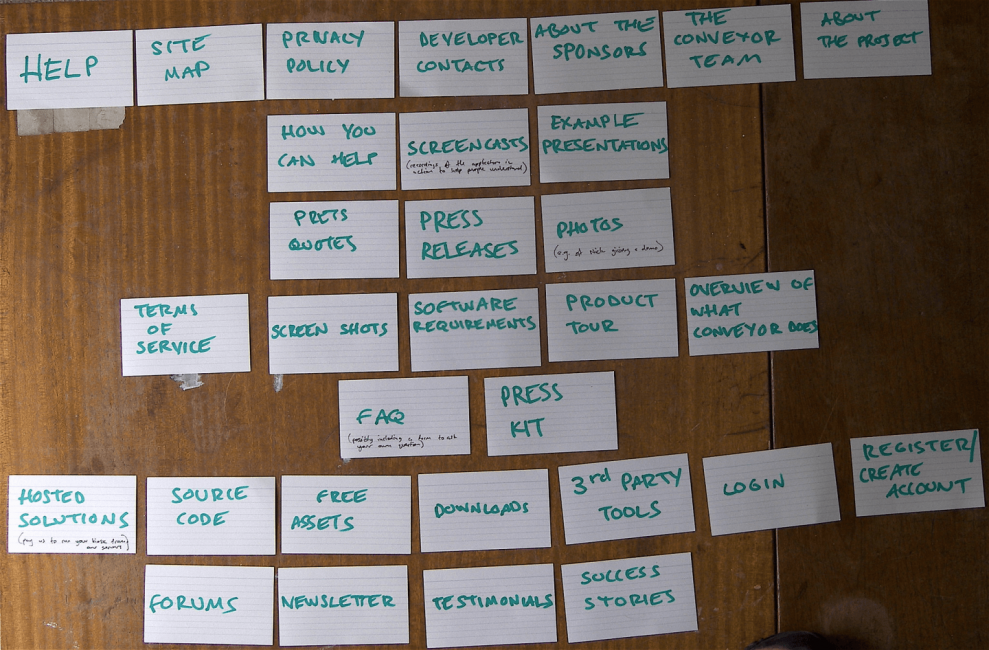 HELP
SITE
MAP
PRIVACY
POLICY
DEVELOPER
CONTACTS
ABOUT THE
SPONSORS
THE
CONVEYOR
TEAM
ABOUT
THE PROJECT
HOW YOU
CAN HELP
SCREENCASTS
(recordings of the application in
action to help people understand)
EXAMPLE
PRESENTATIONS
PRESS
QUOTES
PRESS
RELEASES
PHOTOS
(e.g. of nick giving a demo)
TERMS
OF
SERVICE
SCREEN SHOTS
SOFTWARE
REQUIREMENTS
PRODUCT
TOUR
OVERVIEW OF
WHAT
CONVEYOR DOES
FAQ
(possibly including a form to ask
your own question)
PRESS
KIT
HOSTED
SOLUTIONS
(pay us to run your from
our servers)
SOURCE
CODE
FREE
ASSETS
DOWNLOADS
3rd PARTY
TOOLS
LOGIN
REGISTER/
CREATE
ACCOUNT
FORUMS
NEWSLETTER
TESTIMONIALS
SUCCESS
STORIES